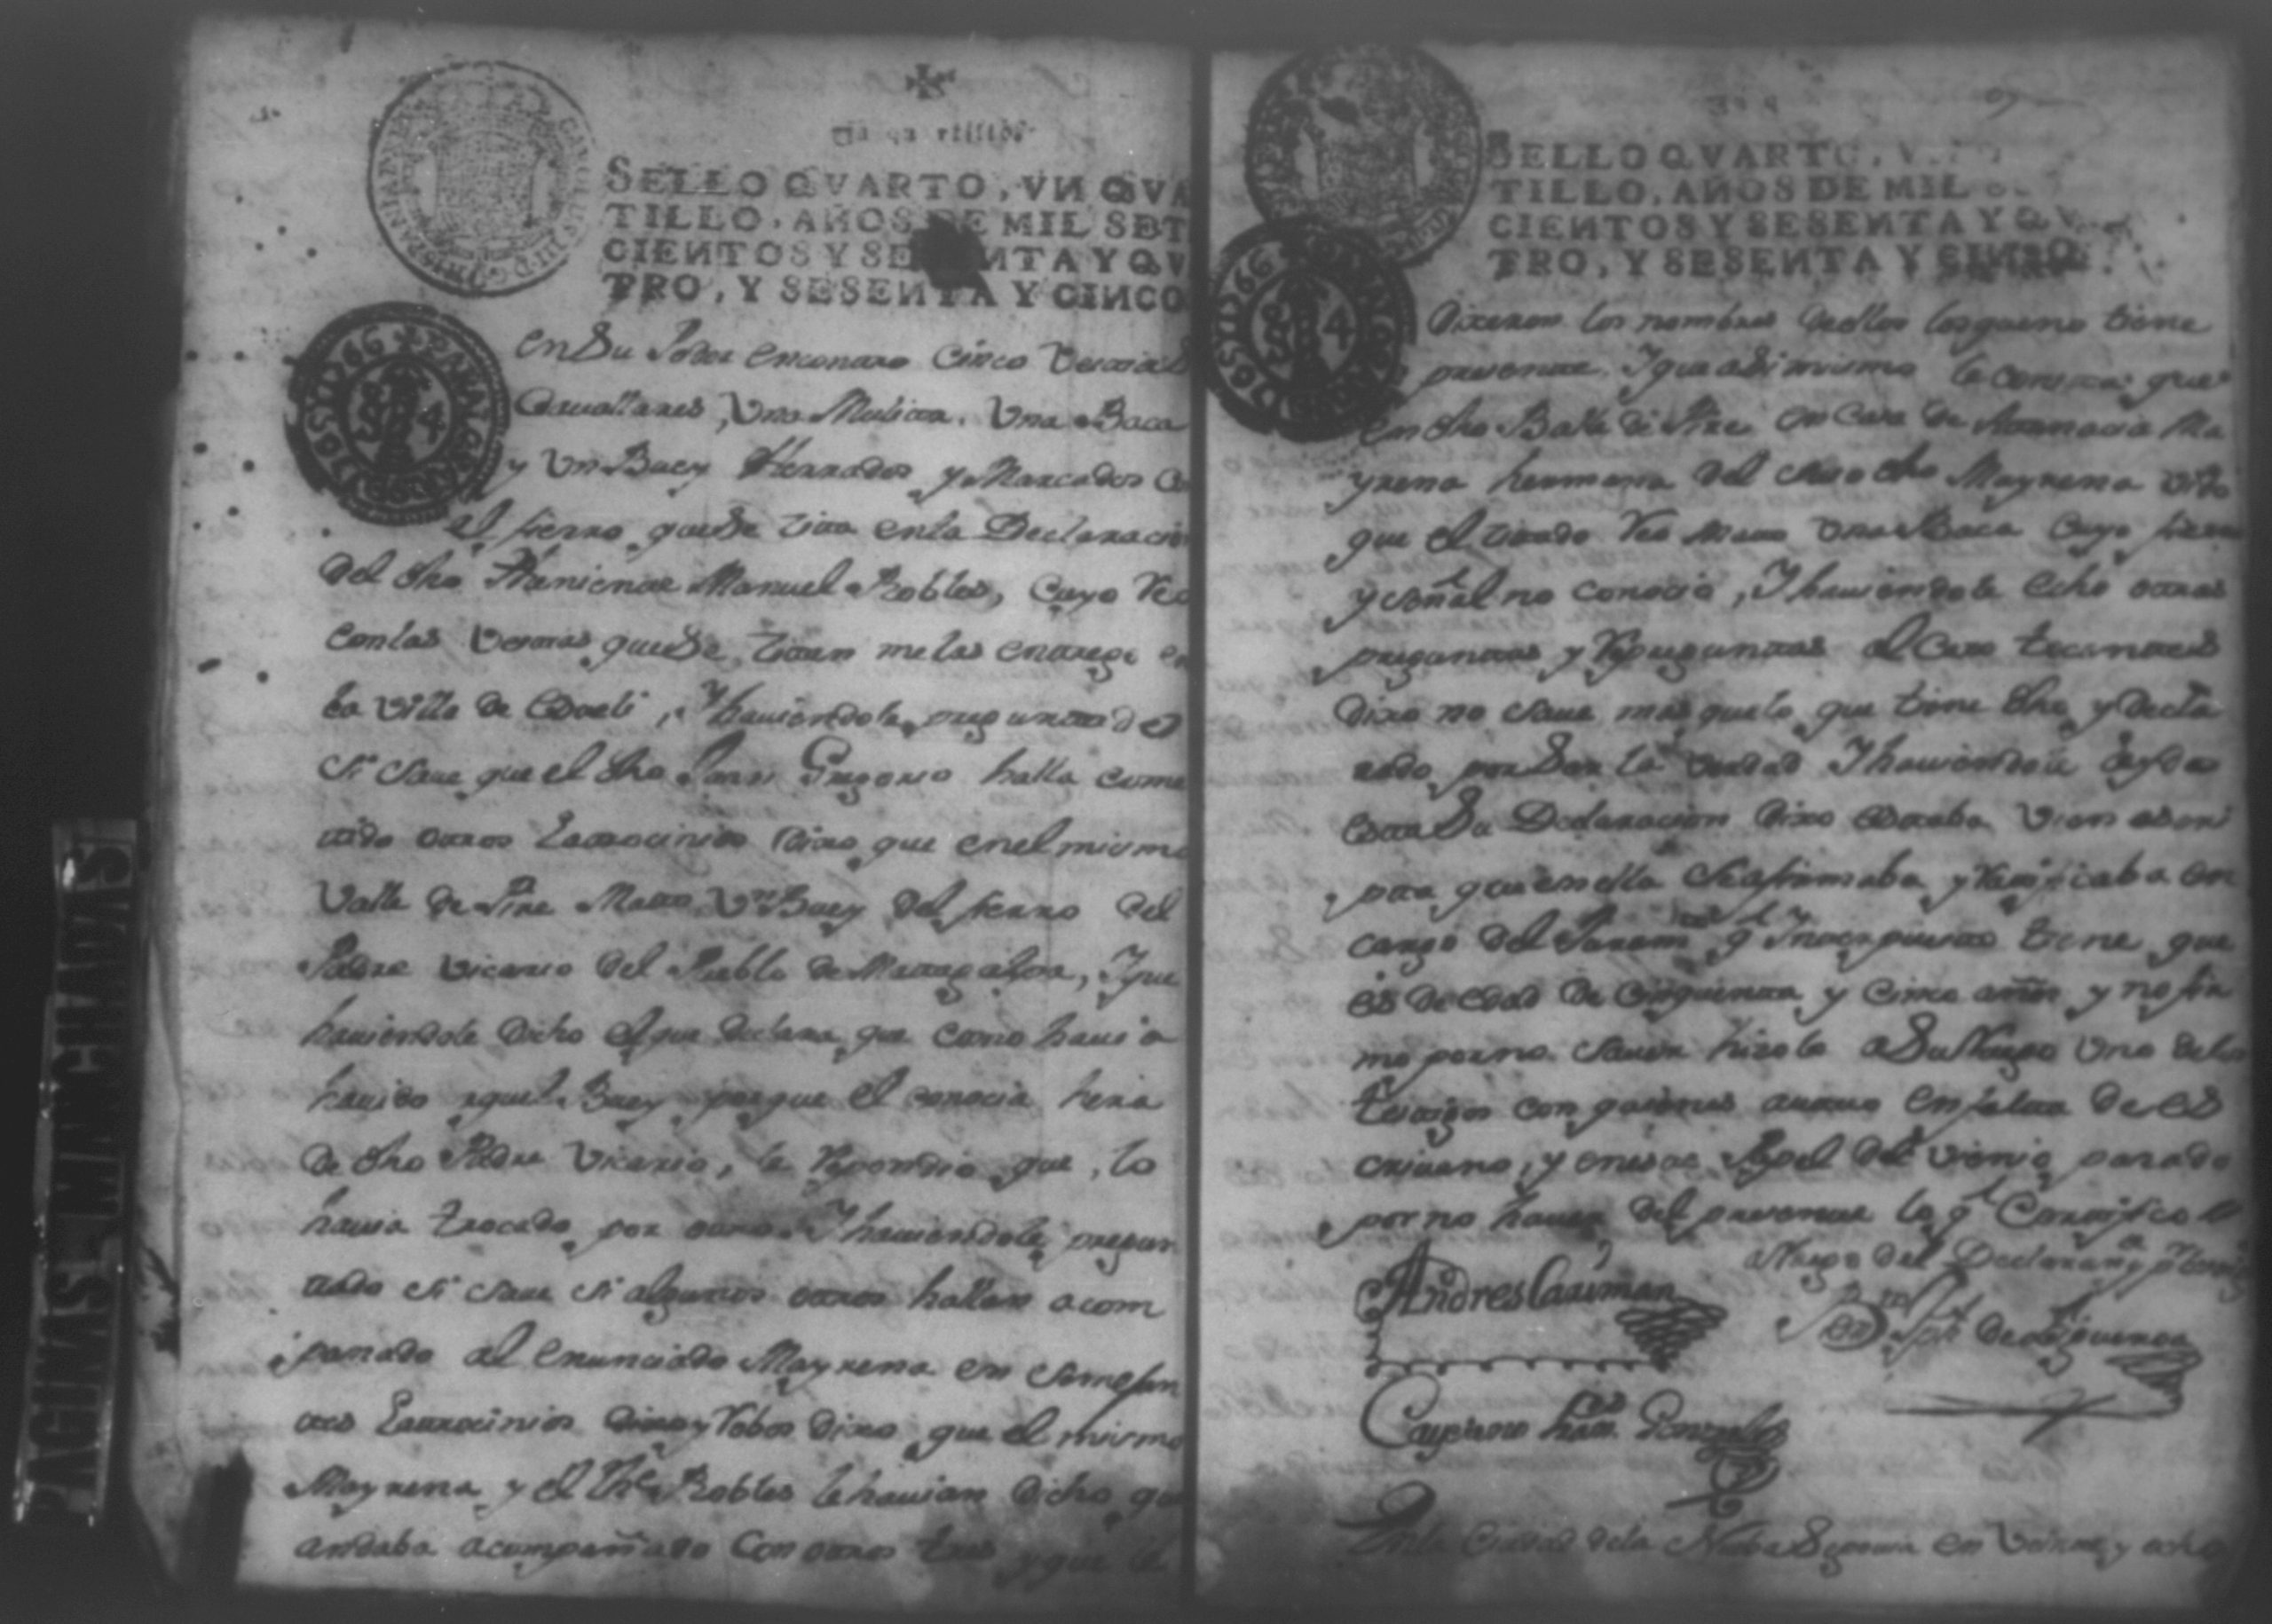 Un quartillo
SELLO QVARTO, VN QVA
TILLO, AÑOS DE MIL SET
CIENTOS Y SESENTA Y QV
TRO, Y SESENTA Y CINCO
en Su Poder encontro Cinco vestias
Cavallares, Una Mulita, Una Baca
y Un Buey Herrados y Marcados Co
el fierro que Se zita en la Declaracion
del dho Theniente Manuel Robles, Cuyo Reo
con las vestias que Se zitan me las entrego en
la Villa de Esteli, Y haviendole preguntado
Si Save que el dho Juan Gregorio halla come
tido otros Latrocinios dixo que en el mismo
Valle de Pire Mato Un Buey del fierro del
Padre Vicario del Pueblo de Matagalpa, Y que
haviendole dicho el que declara que como havia
havido aquel Buey porque el conocia hera
de dho Padre Vicario, le Respondio que lo
havia trocado por otro. Y haviendole pregun
tado Si Save Si algunos otros hallan acom
panado al enunciado Mayrena en Semejan
tes Latrocinios y Robos dixo que el mismo
Mayrena y el Thė Robles le havian dicho que
andaba acompañado Con otros tres y que le
SELLO QVARTO, V
TILLO, AÑOS DE MIL S
CIENTOS Y SESENTA Y QV
TRO, Y SESENTA Y CINCO
Dixeron los nombres de ellos los que no tiene
presente. Y que asimismo le consta que
en dho Balle de Pire en Casa de Ma
yrena hermana del Reo dho Mayrena vido
que el zitado Reo Mato Una Baca Cuyo fierro
y Señal no conocio, Y haviendole echo otras
preguntas y Repreguntas al Caso tocantes
dixo no Save mas que lo que tiene dho y decla
rado por Ser la verdad Y haviendole leyda
esta Su Declaracion dixo estaba vien escri
pta que en ella Se afirmaba y Ratificaba en
cargo del Juramto q Ynterpuesto tiene que
es de edad de Cinquenta y Cinco años y no fir
mo por no Saver hizolo a Su Ruego Uno de los
testigos con quienes actuo en falta de es
crivano, y en este Papel del vienio pasado
por no haver del presente lo q Certifico
Andres Guzman
a Ruego del Declarante y por testigo
de Siguenza
Cayetano Gonzales
En la Ciudad de la Nueba Segovia en Veinte y ocho
PAGINAS MANCHADAS